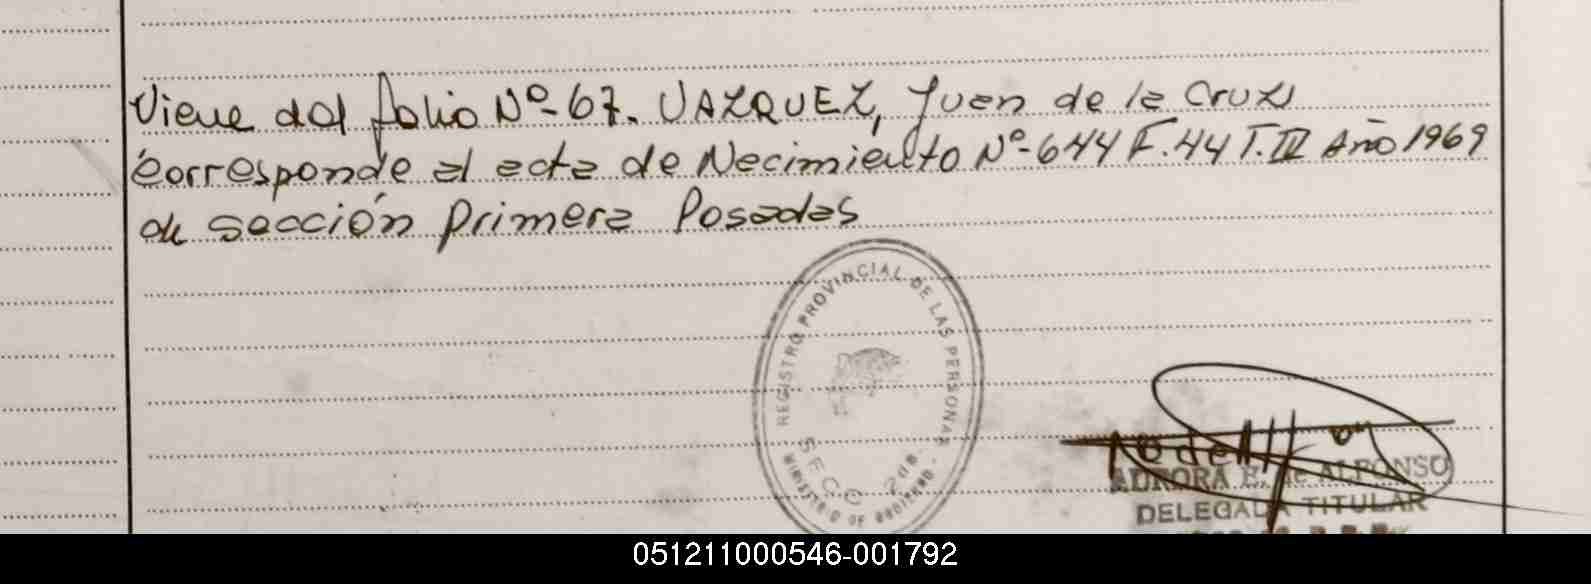 Viene del folio Nº-67. VAZQUEZ, Juan de la Cruz
Corresponde al acta de Nacimiento Nº-644 F.44 T.III Año 1969
de sección primera Posadas
REGISTRO PROVINCIAL DE LAS PERSONAS
SECC 2da
MINISTERIO DE GOBIERNO
AURORA E. de ALFONSO
DELEGADA TITULAR
051211000546-001792